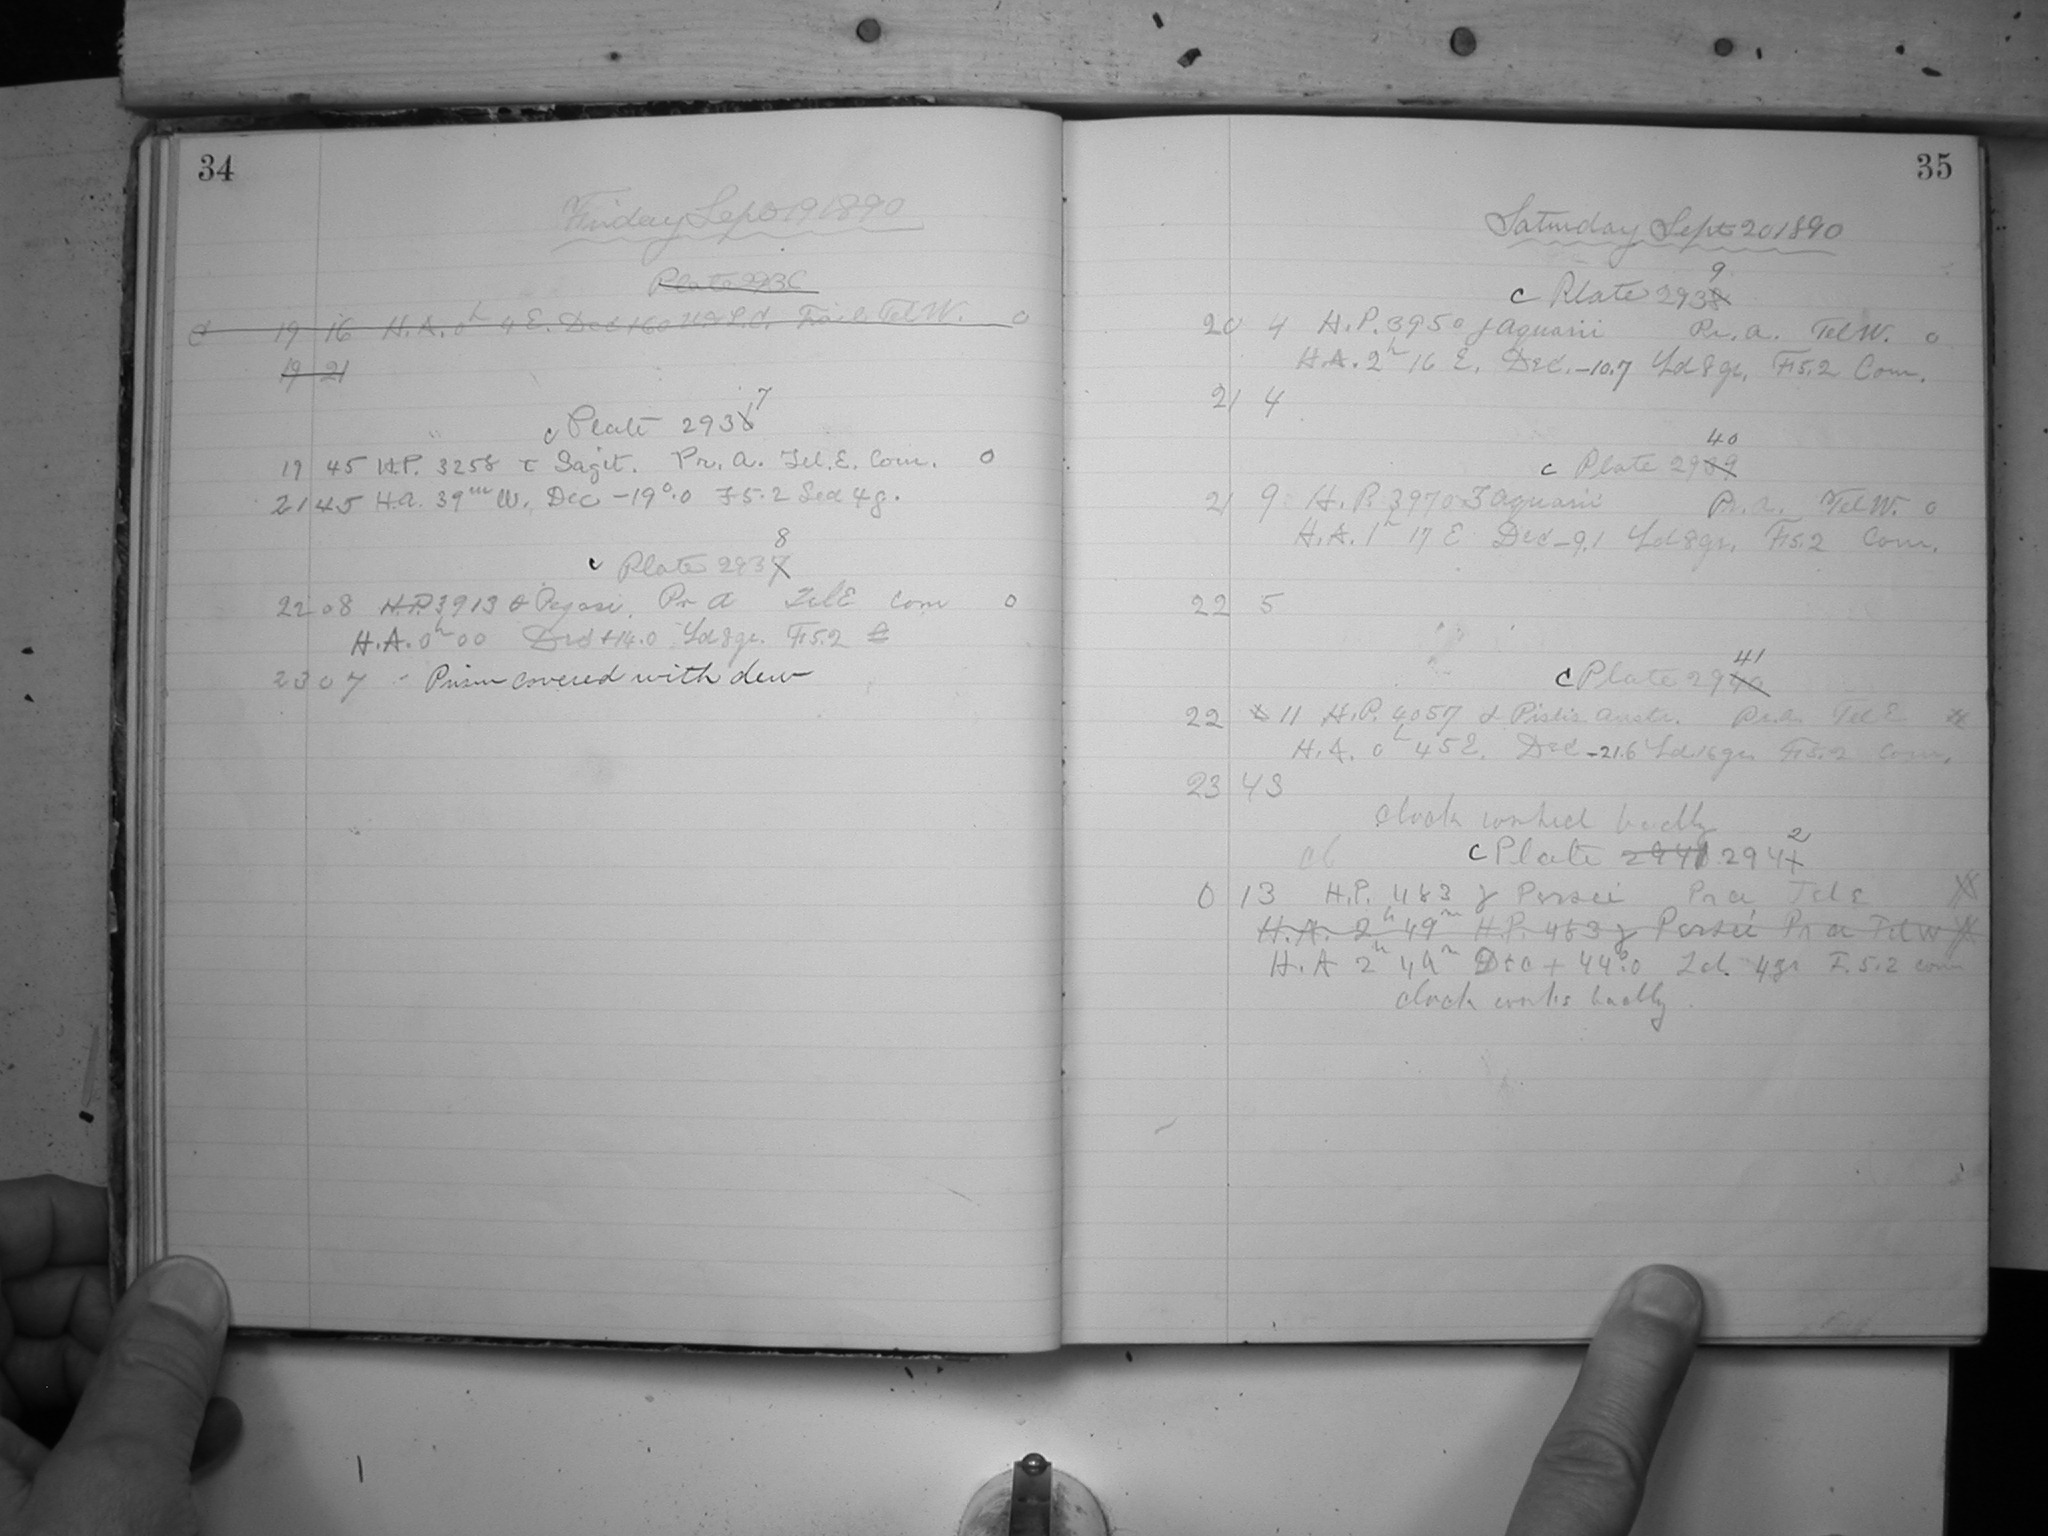 34
Friday Sept 19 1890
Plate 2936
c 19 16 H.A. 0h 4 E. Dec +60 Trail Tel W. 0
19 21
c Plate 2936 7
19 45 H.P. 3258 τ Sagit. Pr. a. Tel. E. Com. 0
21 45 H.a. 39m W. Dec -19°.0 F 5.2 Led 4 g.
c Plate 2937 8
22 08 H.P. 3913 θ Pegasi. Pr a Tel E Com 0
H.A. 0h 00 Dec +14.0 Ld 8 gr. F 5.2
23 07 - Prism covered with dew
35
Saturday Sept 20 1890
c Plate 2938 9
20 4 H.P. 3950 γ Aquarii Pr. a. Tel W. 0
H.A. 2h 16 E. Dec. -10.7 Ld 8 gr. F 5.2 Com.
21 4
c Plate 2939 40
21 9 H.P. 3970 Aquarii Pr. a. Tel W. 0
H.A. 1h 17 E Dec -9.1 Ld 8 gr. F 5.2 Com.
22 5
c Plate 2940 41
22 11 H.P. 4057 α Piscis Austr. Pr. a. Tel E
H.A. 0h 45 E. Dec -21.6 Ld 16 gr F 5.2 Com.
23 43
clock worked badly
c Plate 2941 2941 2
0 13 H.P. 463 γ Persei Pr a Tel E
H.A. 2h 49m H.P. 463 γ Persei Pr a Tel W
H.A 2h 49m Dec + 44°.0 Ld. 4 gr F. 5.2 com
clock works badly.